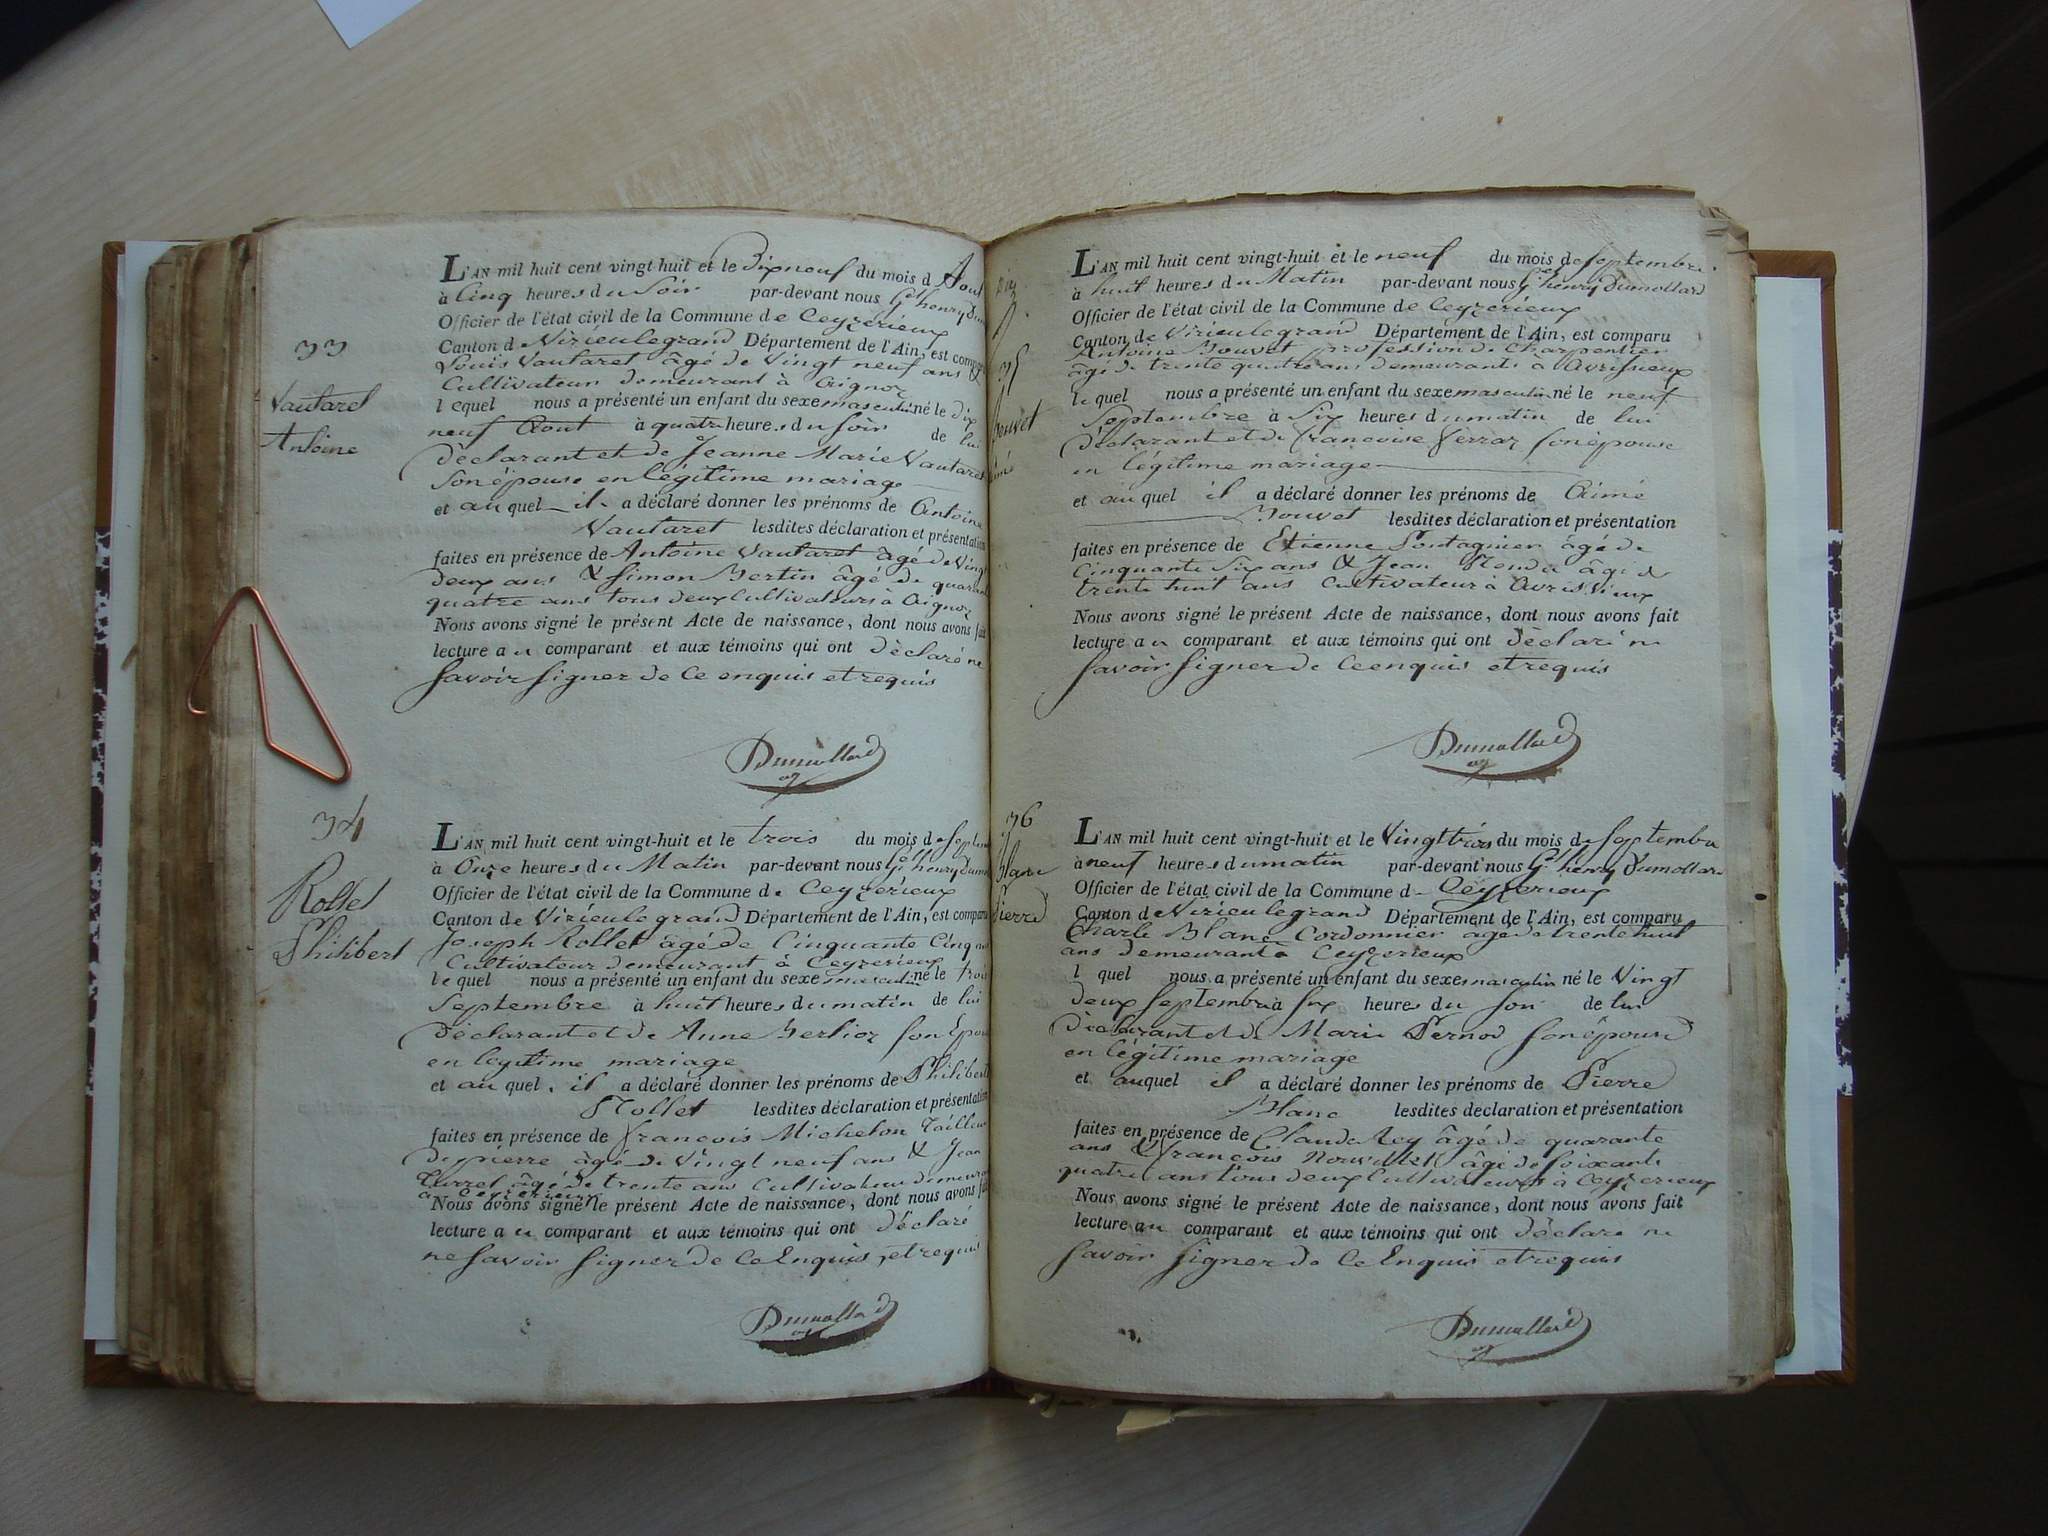 33
Vautaret
Antoine
L'AN mil huit cent vingt-huit et le Dix neuf du mois d'Aout
à Cinq heures du Soir par-devant nous Gel henry
Officier de l'état civil de la Commune de Ceyzerieux
Canton de Virieulegrand Département de l'Ain, est
Louis Vautaret âgé de Vingt neuf ans &
Cultivateur demeurant à Aignoz
lequel nous a présenté un enfant du sexe masculin né le Dix
neuf Aout à quatre heures du Soir de lui
déclarant et de Jeanne Marie Vautaret
Son épouse en légitime mariage
et auquel il a déclaré donner les prénoms de Antoine
Vautaret lesdites déclaration et présentation
faites en présence de Antoine Vautaret âgé de Vingt
deux ans & Simon Bertin âgé de
quatre ans tous deux Cultivateurs à Aignoz
Nous avons signé le présent Acte de naissance, dont nous avons fait
lecture au comparant et aux témoins qui ont déclaré ne
Savoir Signer de Ce enquis et requis
Dumollard
34
Rollet
Philibert
L'AN mil huit cent vingt-huit et le trois du mois de
à Onze heures du Matin par-devant nous Gel henry
Officier de l'état civil de la Commune de Ceyzerieux
Canton de Virieulegrand Département de l'Ain, est
Joseph Rollet âgé de Cinquante Cinq
Cultivateur demeurant à Ceyzerieux
lequel nous a présenté un enfant du sexe masculin né le trois
Septembre à huit heures du matin de lui
déclarant et de Anne Berlioz Son
en legitime mariage
et auquel il a déclaré donner les prénoms de Philibert
Rollet lesdites déclaration et présentation
faites en présence de francois Michelon Tailleur
de pierre âgé de Vingt neuf ans & Jean
âgé de trente ans Cultivateur
a Ceyzerieux
Nous avons signé le présent Acte de naissance, dont nous avons
lecture au comparant et aux témoins qui ont déclaré
ne Savoir Signer de Ce Enquis et requis
Dumollard
35
L'AN mil huit cent vingt-huit et le neuf du mois de Septembre
à huit heures du Matin par-devant nous Gel henry Dumollard
Officier de l'état civil de la Commune de Ceyzerieux
Canton de Virieulegrand Département de l'Ain, est comparu
Antoine Bouvet profession de Charpentier
âgé de trente quatre ans demeurant à Avrissieux
lequel nous a présenté un enfant du sexe masculin né le neuf
Septembre à Six heures du matin de lui
déclarant et de francoise Ferraz son épouse
en légitime mariage
et auquel il a déclaré donner les prénoms de Aimé
Bouvet lesdites déclaration et présentation
faites en présence de Etienne Pontagnier âgé de
Cinquante Six ans & Jean âgé de
trente huit ans Cultivateur à
Nous avons signé le présent Acte de naissance, dont nous avons fait
lecture au comparant et aux témoins qui ont déclaré ne
Savoir Signer de Ce enquis et requis
Dumollard
36
Blanc
Pierre
L'AN mil huit cent vingt-huit et le Vingt trois du mois de Septembre
à neuf heures du matin par-devant nous Gel henry Dumollard
Officier de l'état civil de la Commune de Ceyzerieux
Canton de Virieulegrand Département de l'Ain, est comparu
Charle Blanc Cordonnier âgé de trente huit
ans demeurant a Ceyzerieux
l quel nous a présenté un enfant du sexe masculin né le Vingt
deux Septembre à Six heures du Soir de lui
déclarant et de Marie Pernod Son épouse
en légitime mariage
et auquel il a déclaré donner les prénoms de Pierre
Blanc lesdites déclaration et présentation
faites en présence de Claude Rey âgé de quarante
ans & francois âgé de Soixante
quatre ans tous deux Cultivateurs a Ceyzerieux
Nous avons signé le présent Acte de naissance, dont nous avons fait
lecture au comparant et aux témoins qui ont déclaré ne
Savoir Signer de Ce Enquis et requis
Dumollard